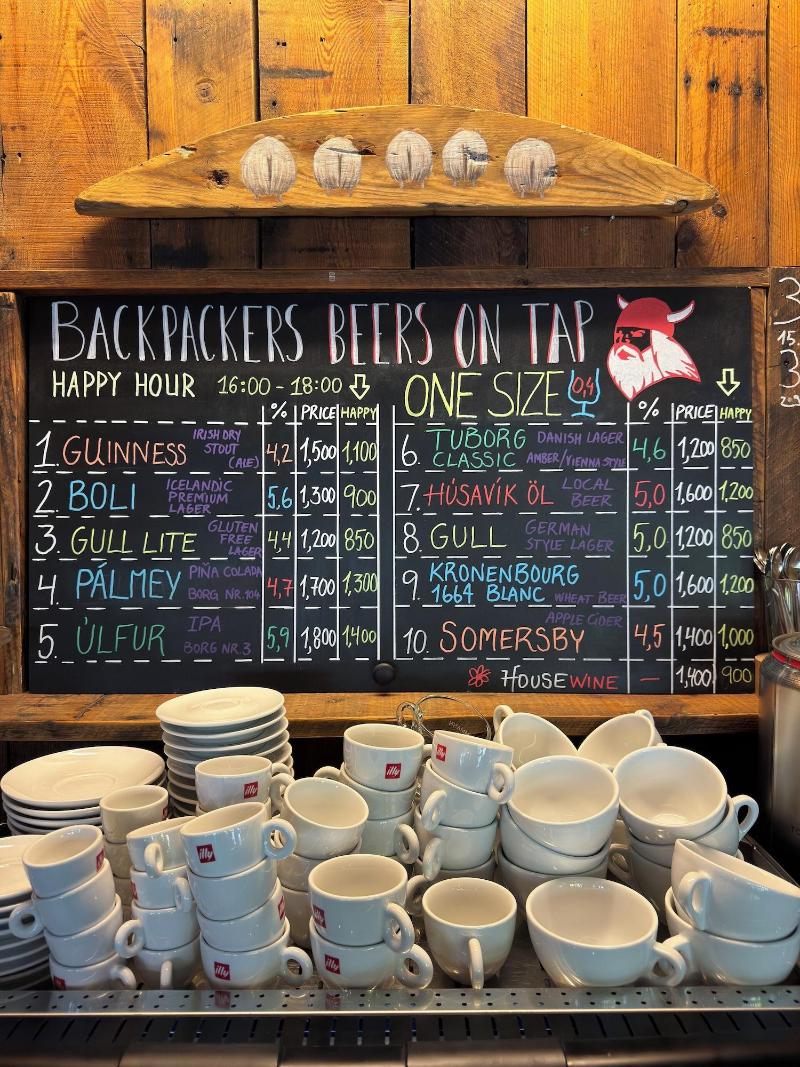 BACKPACKERS BEERS ON TAP
HAPPY HOUR 16:00 - 18:00
ONE SIZE 0,4
% PRICE HAPPY
1. GUINNESS IRISH DRY STOUT (ALE) 4,2 1,500 1,100
2. BOLI ICELANDIC PREMIUM LAGER 5,6 1,300 900
3. GULL LITE GLUTEN FREE LAGER 4,4 1,200 850
4. PÁLMEY PIÑA COLADA BORG NR.104 4,7 1,700 1,300
5. ÚLFUR IPA BORG NR.3 5,9 1,800 1,400
% PRICE HAPPY
6. TUBORG CLASSIC DANISH LAGER AMBER/VIENNA STYLE 4,6 1,200 850
7. HÚSAVÍK ÖL LOCAL BEER 5,0 1,600 1,200
8. GULL GERMAN STYLE LAGER 5,0 1,200 850
9. KRONENBOURG 1664 BLANC WHEAT BEER 5,0 1,600 1,200
10. SOMERSBY APPLE CIDER 4,5 1,400 1,000
HOUSEWINE — 1,400 900
3
15.
3
illy
illy
illy
illy
illy
illy
illy